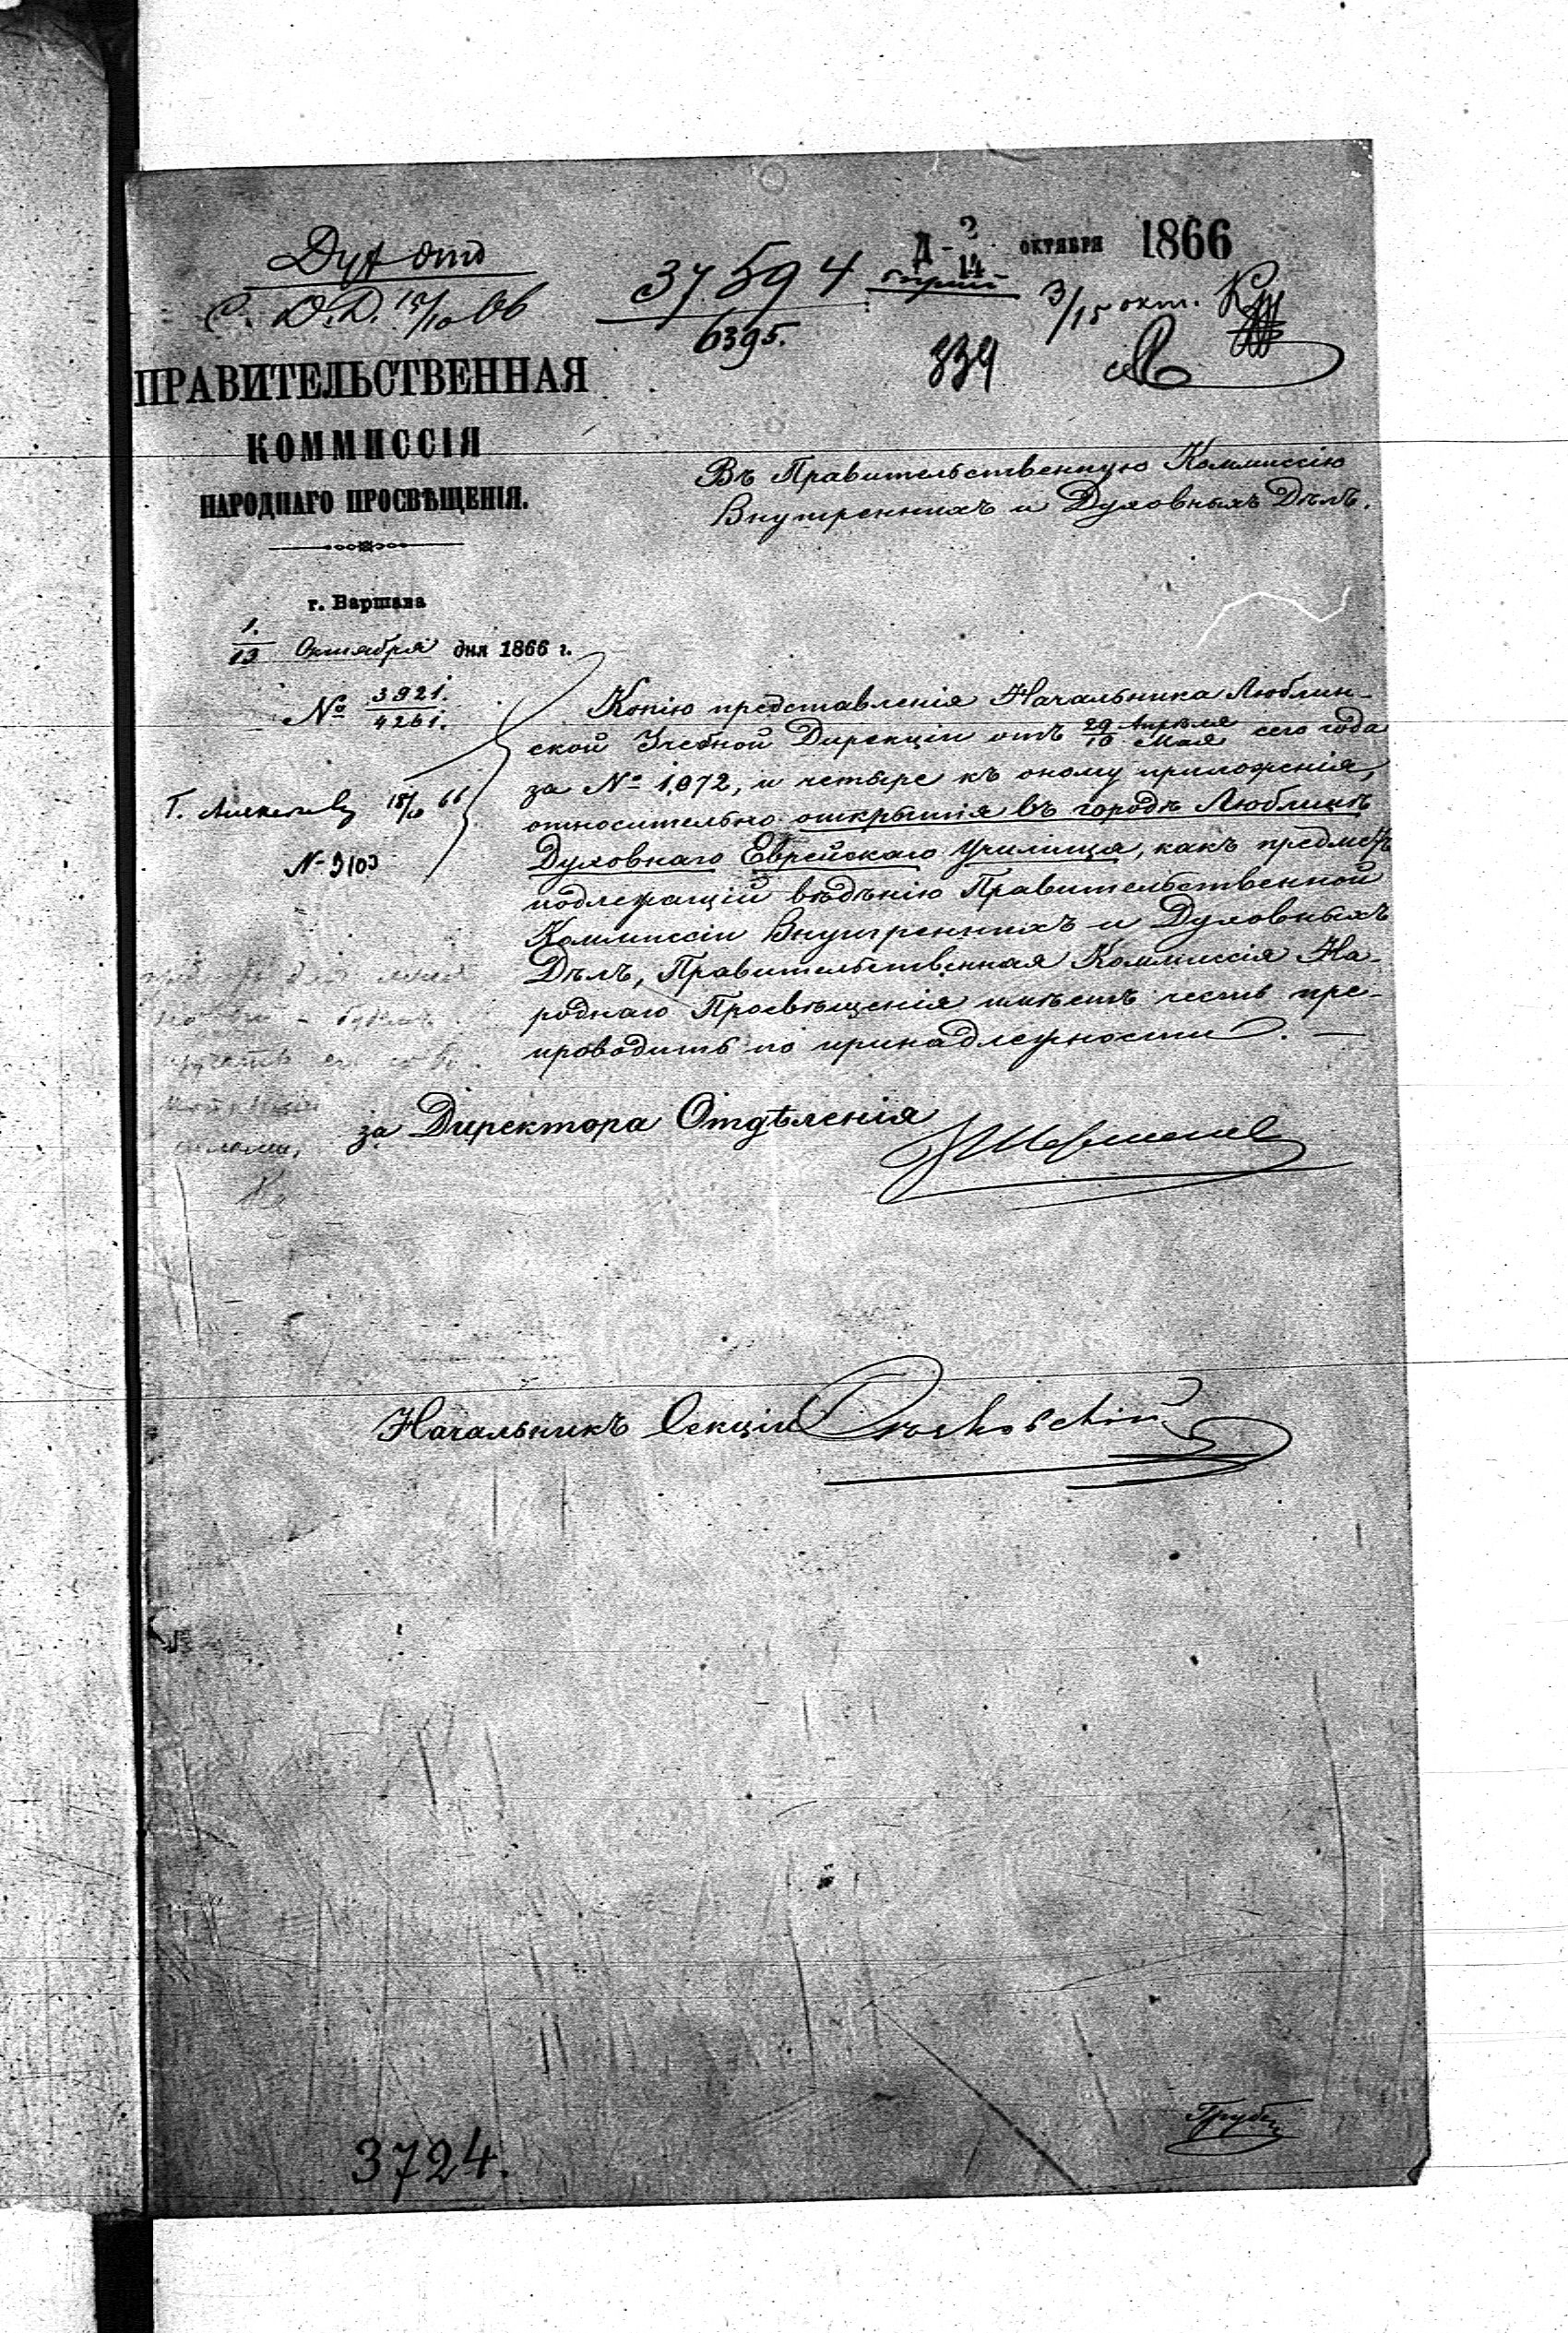 Дух отд
С. Д. Д. 15/10 66
37594
6395.
Д - 2/14 ОКТЯБРЯ 1866
3/15 окт.
339
ПРАВИТЕЛЬСТВЕННАЯ
КОММИССІЯ
НАРОДНАГО ПРОСВѢЩЕНІЯ.
Въ Правительственную Коммиссію
Внутреннихъ и Духовныхъ Дѣлъ.
г. Варшава
1/13 Октября дня 1866 г.
№ 3921./4261.
Г. 15/10 66
№ 3103
Копію представленія Начальника Люблин-
ской Учебной Дирекціи отъ 29 Апрѣля/10 Мая сего года
за № 1,072, и четыре къ оному приложенія,
относительно открытія въ городѣ Люблинѣ
Духовнаго Еврейскаго Училища, какъ предметъ
подлежащій вѣдѣнію Правительственной
Коммиссіи Внутреннихъ и Духовныхъ
Дѣлъ, Правительственная Коммиссія На-
роднаго Просвѣщенія имѣетъ честь пре-
проводить по принадлежности. —
за Директора Отдѣленія
Начальникъ Секціи
3724.